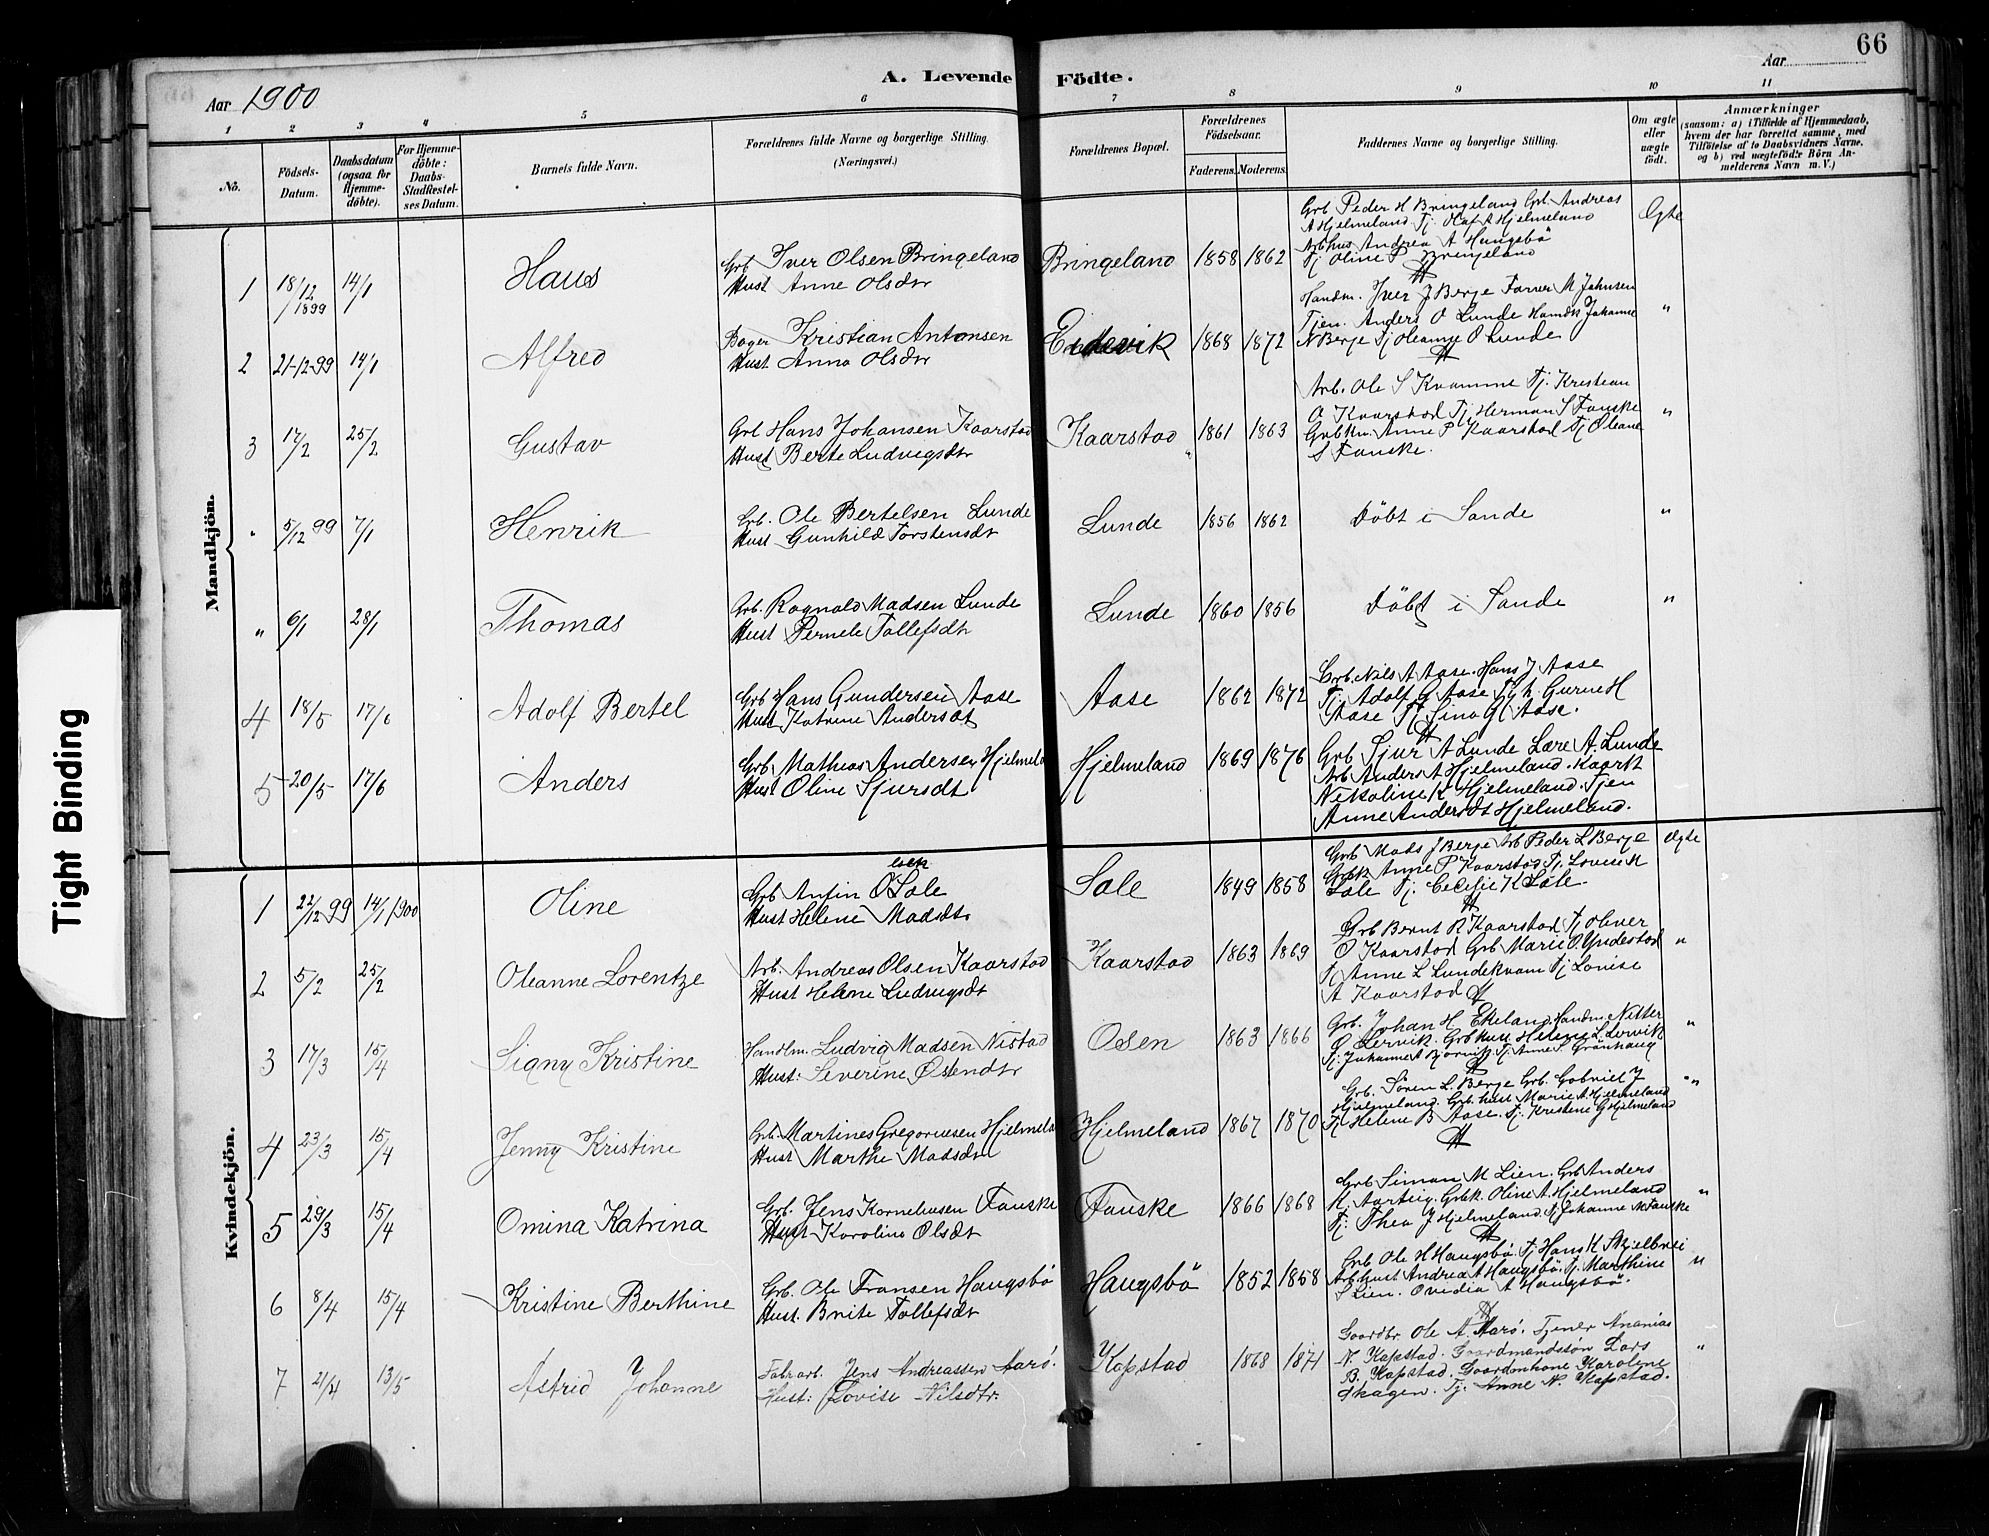 66
A. Levende Födte.
Aar 1900
Aar
1 2 3 4 5 6 7 8 9 10 11
No.
Födsels-Datum.
Daabsdatum (ogsaa for Hjemme-döbte).
For Hjemme-döbte: Daabs-Stadfæstel-ses Datum.
Barnets fulde Navn.
Forældrenes fulde Navne og borgerlige Stilling. (Næringsvei.)
Forældrenes Bopæl.
Forældrenes Födselsaar.
Faderens. Moderens.
Faddernes Navne og borgerlige Stilling.
Om ægte eller uægte födt.
Anmærkninger
(saasom: a) i Tilfælde af Hjemmedaab, hvem der har forrettet samme, med Tilföielse af to Daabsvidners Navne. og b) ved uægtefödte Börn An-melderens Navn m. V.)
Mandkjön.
1 18/12 1899 14/1 Hans
Grb Iver Olsen Bringeland
Hust Anne Olsdtr
Bringeland 1858 1862
Grb Peder H Bringeland Grb. Andreas
A Hjelmeland. Tj. Olaf A Hjelmeland
Arbhus Andrea A Haugsbö
Tj Oline P Bringeland
Egte
2 21-12-99 14/1 Alfred
Bager Kristian Antonsen
Hust Anna Olsdtr
Eidevik 1868 1872
Handm. Iver J Berge Farver M Johnsen
Tjen. Anders O Lunde Handk Johanne
N Berge Tj Oleanne O Lunde
"
3 17/2 25/2 Gustav
Grb Hans Johansen Kaarstad
Hust Berte Ludvigsdtr
Kaarstad 1861 1863
Arb. Ole S Kvamme Tj. Kristian
O Kaarstad Tj Herman S Fauske
Grbkn Anne P Kaarstad Tj Oleane
S Fauske.
"
" 5/12 99 7/1 Henrik
Grb. Ole Bertelsen Lunde
Hust Gunhild Torstensdt
Lunde 1856 1862
Döbt i Sande
"
" 6/1 28/1 Thomas
Grb. Ragnald Madsen Lunde
Hust Pernele Tollefsdt
Lunde 1860 1856
Döbt i Sande
"
4 18/5 17/6 Adolf Bertel
Grb Hans Gundersen Aase
Hust Katrine Andersdt
Aase 1862 1872
Grb. Nils A Aase. Hans J Aase
Tj. Adolf G Aase Gurine H
Aase Tj Sina Aase.
5 20/5 17/6 Anders
Grb. Mathias Andersen Hjelmela
Hust Oline Sjursdt
Hjelmeland 1869 1876
Grb Sjur A Lunde Lære A. Lunde
Arb Anders A Hjelmeland. Kaark
Nikoline K Hjelmeland. Tjen
Anne Andersdt Hjelmeland.
Kvindekjön.
1 22/12 99 14/1 1900 Oline
Grb Anfin Olsen Sale
Hust Helene Madsdt
Sale 1849 1858
Grb Mads J Berge Arb Peder L Berge
Grbk Anne P Kaarstad Tj. Lovise K
Sale Tj. Cecilie K Sale.
Ægte
2 5/2 25/2 Oleanne Lorentze
Arb. Andreas Olsen Kaarstad
Hust Helene Ludvigsdt
Kaarstad 1863 1869
Grb Bernt R Kaarstad Tj Oliver
O Kaarstad Grb Marie O. Yndestad
Tj Anne L Lundekvam Tj Lovise
A Kaarstad
"
3 17/3 15/4 Signy Kristine
Handlm. Ludvig Madsen Nistad
Hust: Severine Østendtr
Osen 1863 1866
Grb. Johan H Ekeland. Handm. Nitter
O Lervik. Grbkust Helene L Lervik
Tj. Johanne A Bjørvik. Tj. Anne S. Grönhaug
"
4 23/3 15/4 Jenny Kristine
Grb. Martines Gregoriusen Hjelmela
Hust Marthe Madsdtr
Hjelmeland 1867 1870
Grb. Søren L. Berge Grb. Gabriel J
Hjelmeland. Grb. hust Marie A. Hjelmeland
Tj Helene B Aase. Tj. Kristine G Hjelmeland
"
5 29/3 15/4 Omina Katrina
Grb. Jens Korneliusen Fauske
Hust Karoline Olsdt
Fauske 1866 1868
Grb Simon M Lien. Grb Anders
K. Aarseig. Grbk. Oline A. Hjelmeland
Tj. Thea J Hjelmeland. Tj Johanne M Fauske
"
6 8/4 15/4 Kristine Berthine
Grb. Ole Fransen Haugsbö
Hust. Brite Tollefsdt
Haugsbö 1852 1858
Grb Ole H Haugsbö. Tj Hans K Skjelbrei
Arbhust Andrea A Haugsbö. Tj. Marthine
S Lien. Ovidia A Haugsbö.
"
7 2/4 13/5 Astrid Johanne
Fabrarb. Jens Andreassen Aarö.
Hust: Lovise Nilsdtr.
Kapstad 1868 1871
Gaardbr. Ole A. Aarö. Tjener Ananias
N. Kapstad. Gaardmandssön Lars
B. Kapstad. Gaardmkone Karoline
Skagen. Tj. Anne N. Kapstad.
"
Tight Binding